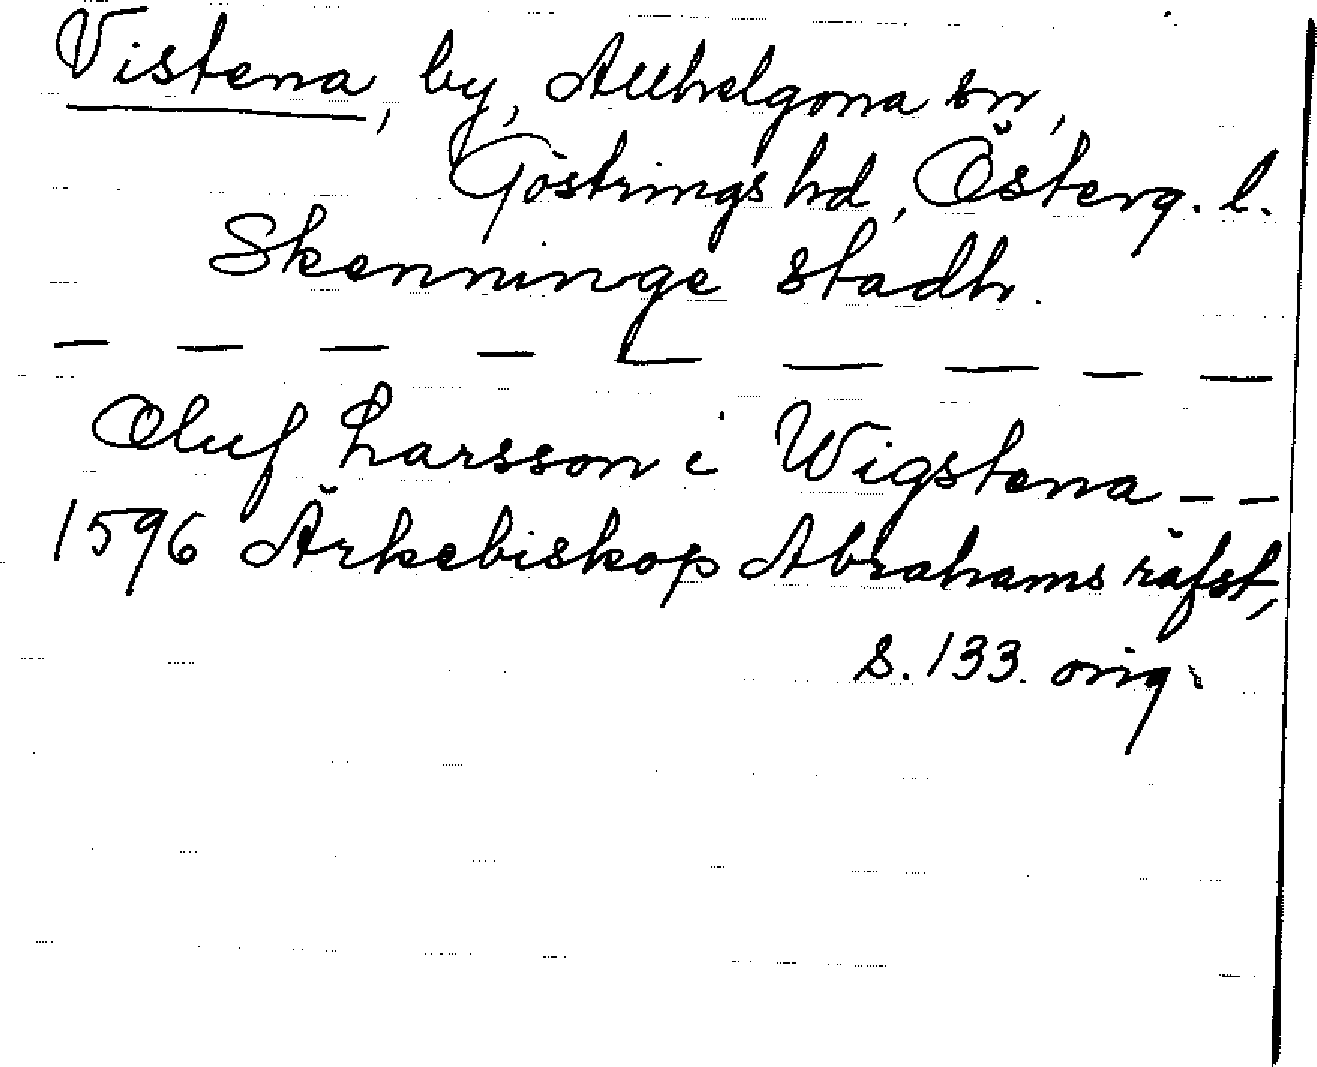 Vistena, by, Allhelgona sn,
Göstrings hd, Österg. l.
Skenninge stadh.
— — — — — — — — —
Oluf Larsson i Wigstena – –
1596 Ärkebiskop Abrahams räfst,
s. 133. orig.